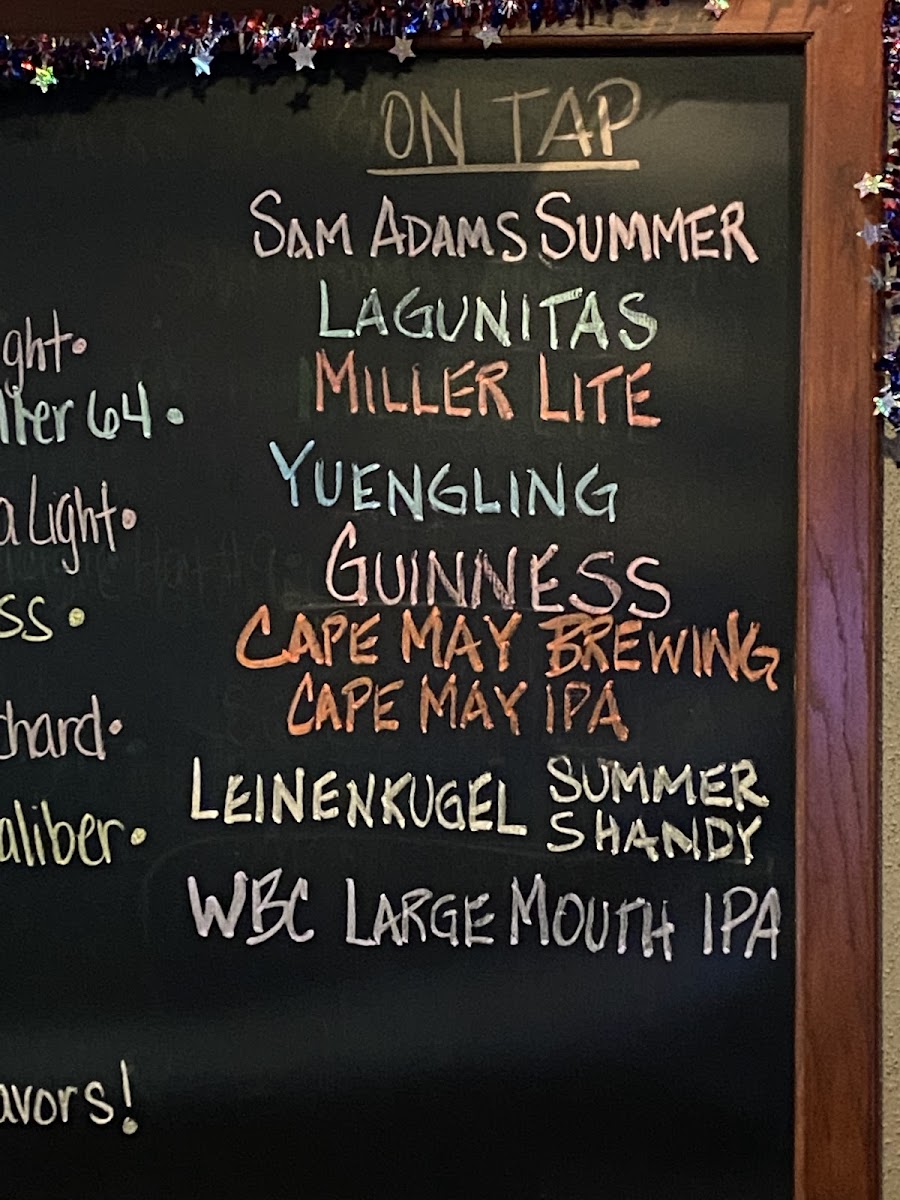 ON TAP
SAM ADAMS SUMMER
LAGUNITAS
MILLER LITE
YUENGLING
GUINNESS
CAPE MAY BREWING
CAPE MAY IPA
LEINENKUGEL SUMMER
SHANDY
WBC LARGE MOUTH IPA
ght•
ller 64•
a Light•
ss•
chard•
aliber•
avors!